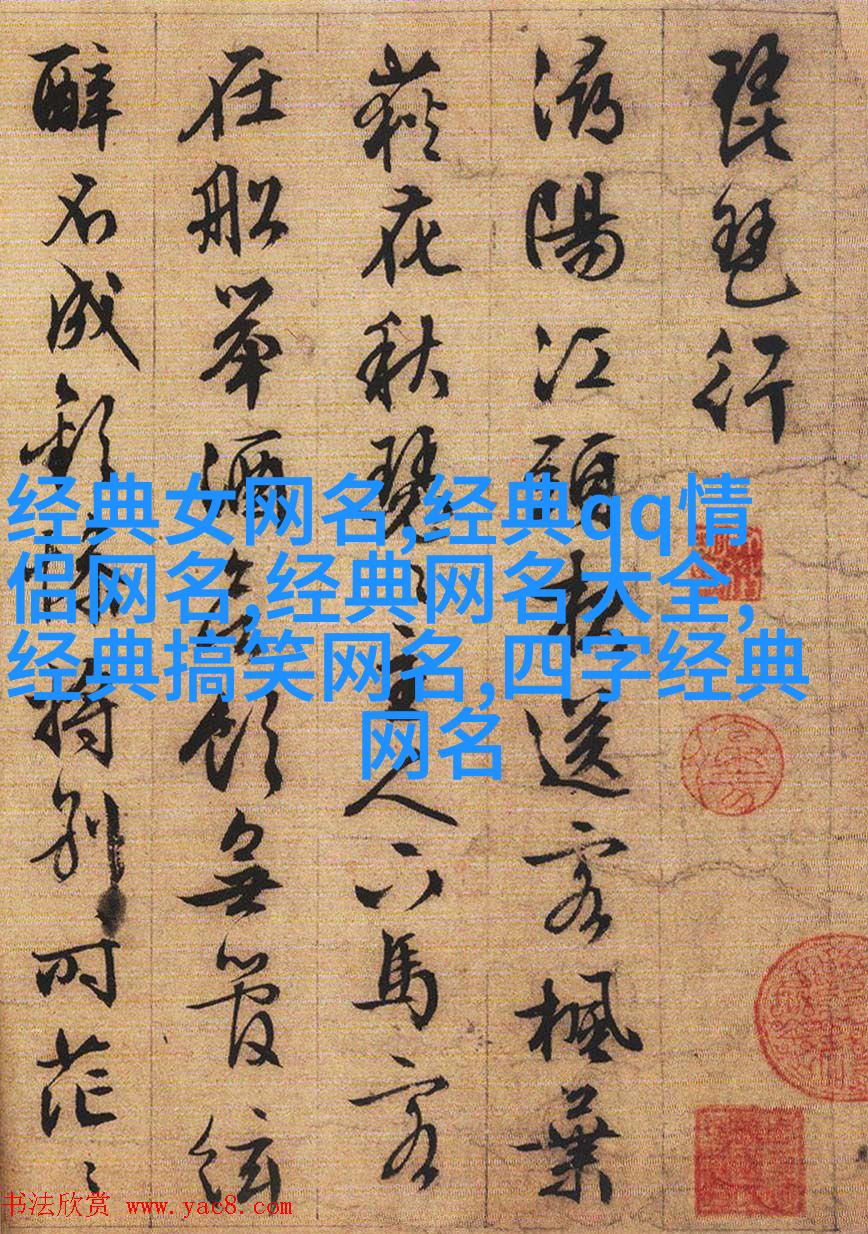 琵琶行
潯陽江頭夜送客楓葉
荻花秋瑟〻主人下馬客
在船舉酒欲飲無管絃
醉不成歡慘將別時茫〻
经典女网名,经典qq情
侣网名,经典网名大全,
经典搞笑网名,四字经典
网名
书法欣赏 www.yac8.com